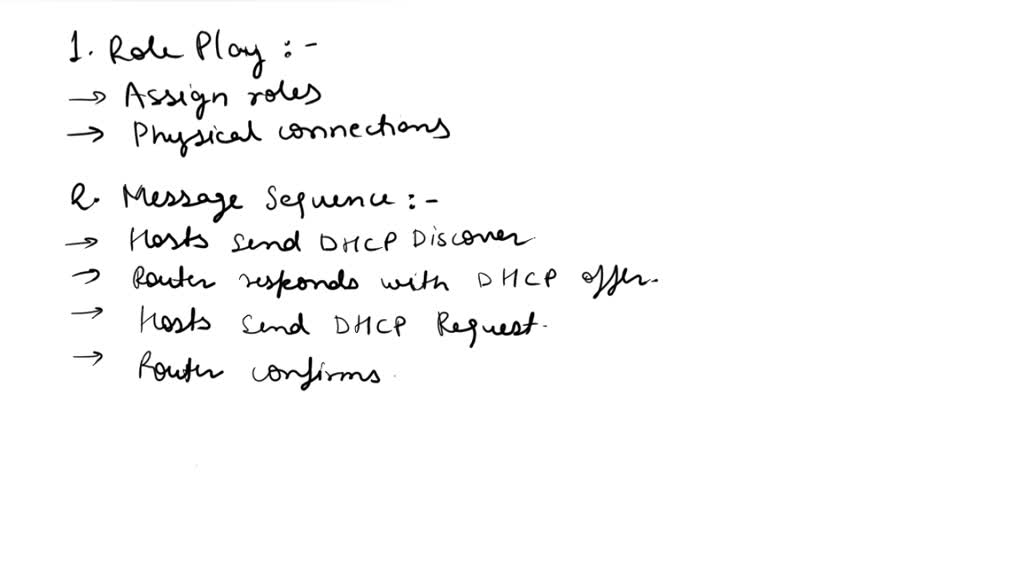 1. Role Play :-
→ Assign roles
→ Physical connections
2. Message Sequence :-
→ Hosts send DHCP Discover
→ Router responds with DHCP offer.
→ Hosts send DHCP Request.
→ Router confirms